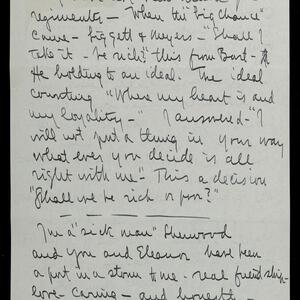 regiments - When the "Big Chance"
came - Liggett & Meyers - "Shall I
take it - be rich?" this from Bart -
He holding to an ideal. The ideal
counting "Where my heart is and
my loyality -" I answered - "I
will not put a thing in your way
what ever you decide is all
right with me". This a decision
"Shall we be rich or poor?"
I'm a "sick man" Sherwood
and you and Eleanor have been
a port in a storm to me - real friendship
love - caring - and honestly -